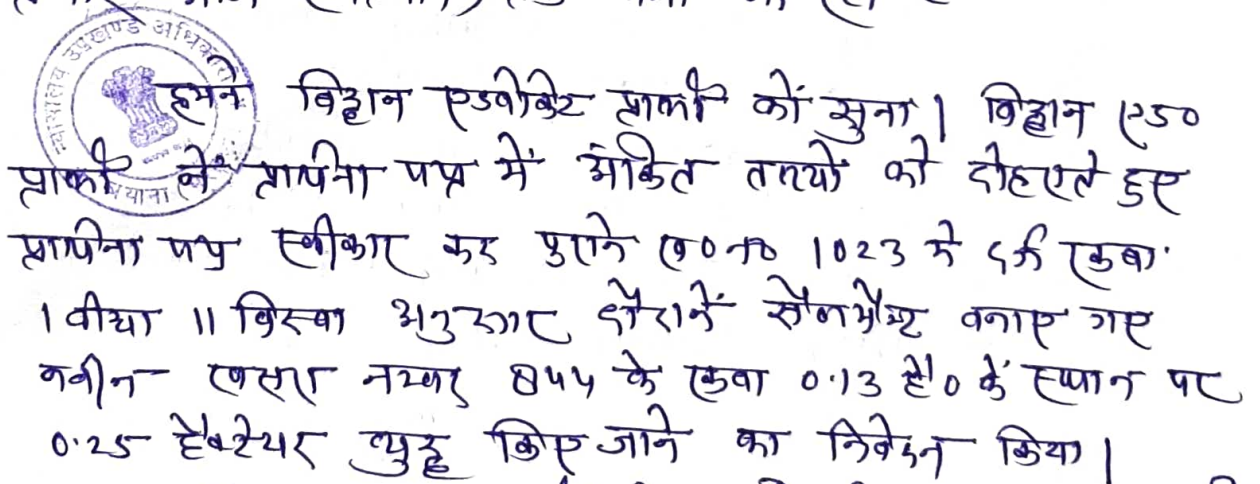 न्यायालय उपखण्ड अधिकारी
बयाना
हमने विद्वान एडवोकेट प्रार्थी को सुना। विद्वान एड०
प्रार्थी ने प्रार्थना पत्र में अंकित तथ्यों को दोहराते हुए
प्रार्थना पत्र स्वीकार कर पुराने ख० न० 1023 में दर्ज रकबा
1 बीघा 11 बिस्वा अनुसार दौराने सैटलमैन्ट बनाए गए
नवीन खसरा नम्बर 844 के रकबा 0.13 है० के स्थान पर
0.25 हैक्टेयर शुद्ध किए जाने का निवेदन किया।